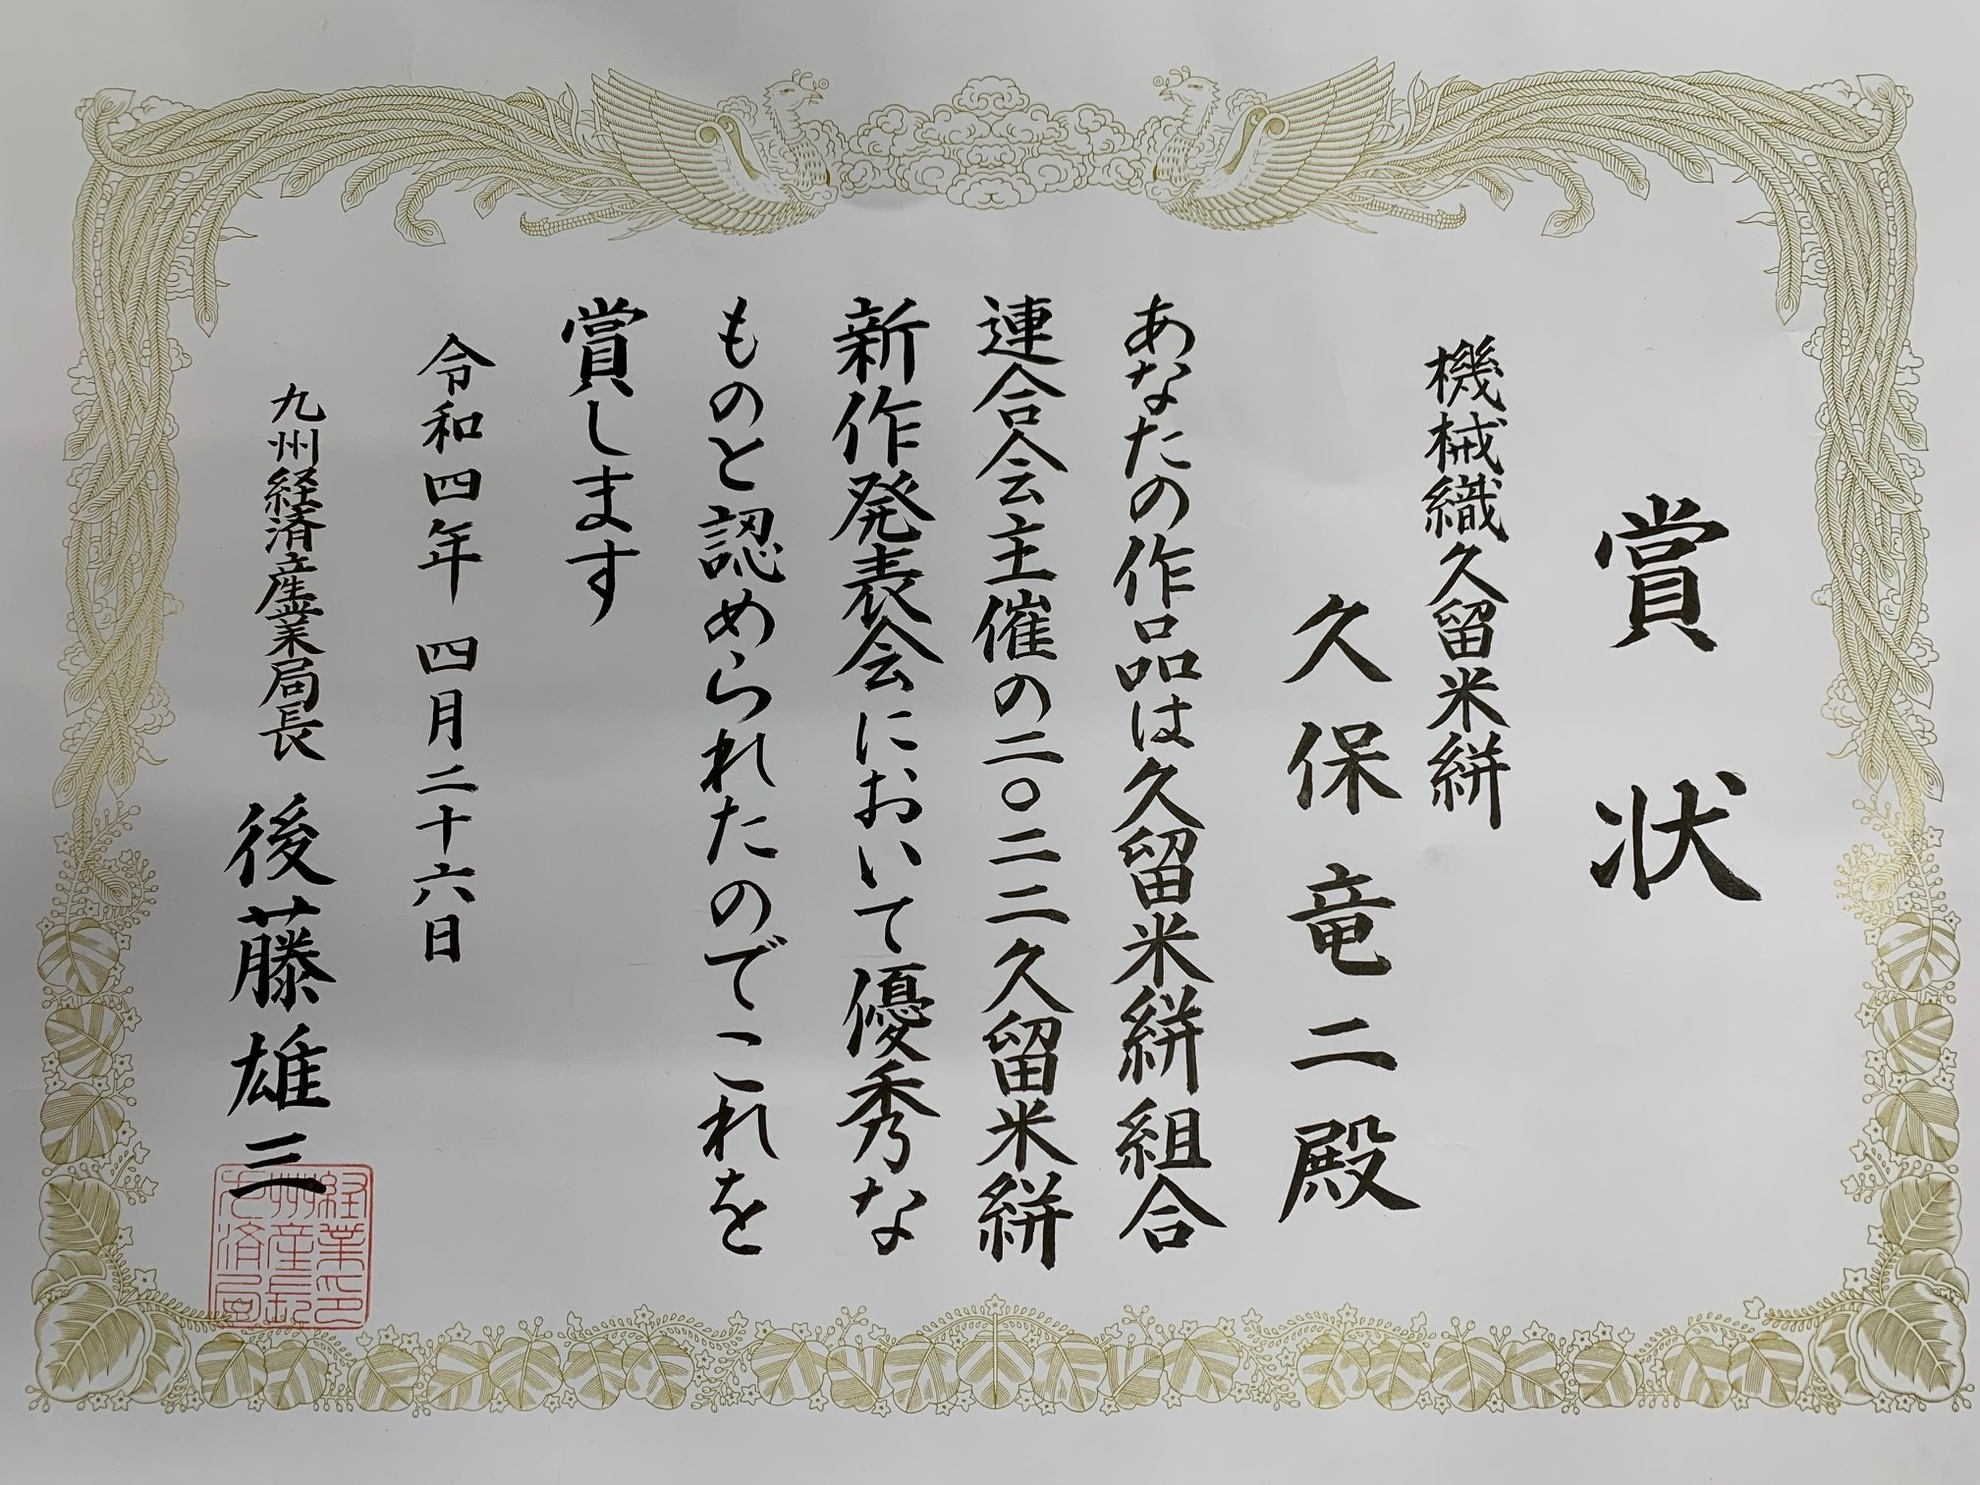 賞状
機械織久留米絣
久保竜二殿
あなたの作品は久留米絣組合
連合会主催の二〇二二久留米絣
新作発表会において優秀な
ものと認められたのでこれを
賞します
令和四年 四月二十六日
九州経済産業局長 後藤雄三
経業印
州産長
九済局